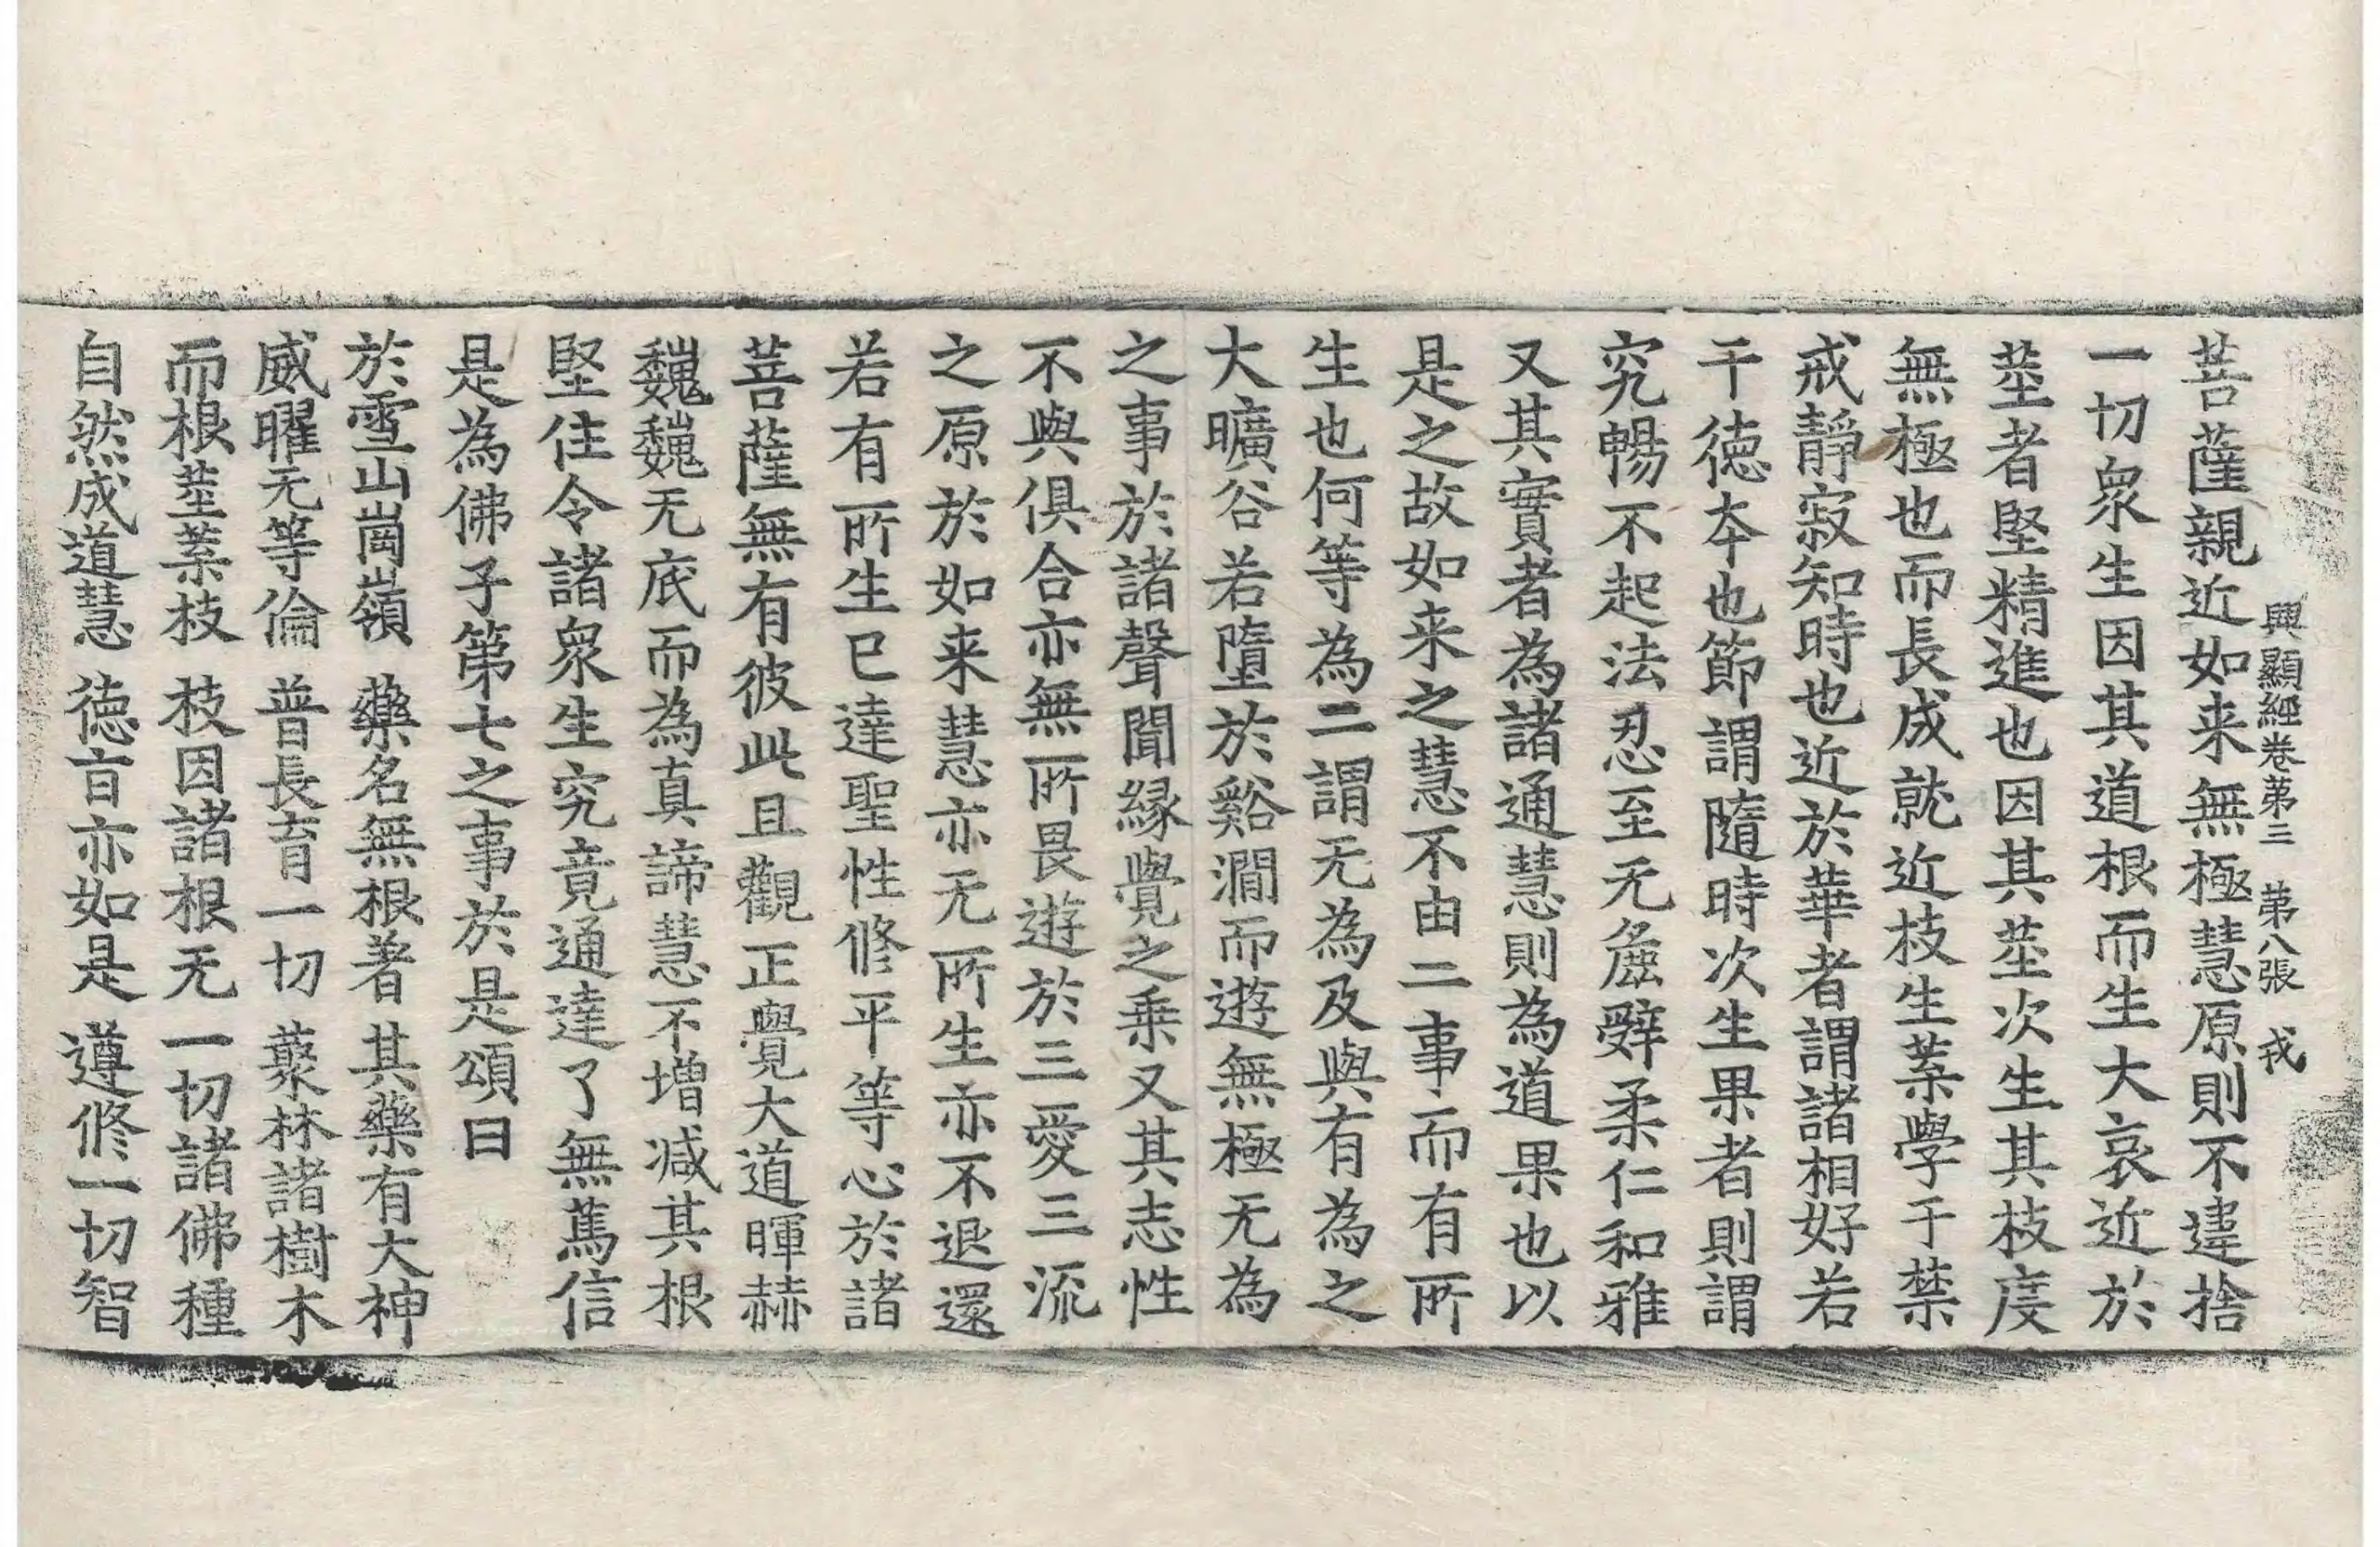 興顯經卷苐三　苐八張　戎
菩薩親近如来無極慧原則不違捨
一切衆生因其道根而生大哀近於
莖者堅精進也因其莖次生其枝度
無極也而長成就近枝生葉學于禁
戒靜寂知時也近於華者謂諸相好若
干德本也節謂隨時次生果者則謂
究暢不起法忍至无麁辤柔仁和雅
又其實者為諸通慧則為道果也以
是之故如来之慧不由二事而有所
生也何等為二謂无為及與有為之
大曠谷若墮於谿澗而遊無極无為
之事於諸聲聞緣覺之乗又其志性
不與俱合亦無所畏遊於三愛三流
之原於如来慧亦无所生亦不退還
若有所生已達聖性修平等心於諸
菩薩無有彼此且觀正覺大道暉赫
巍巍无底而為真諦慧不增减其根
堅住令諸衆生究竟通達了無蔿信
是為佛子第七之事於是頌曰
於雪山崗嶺　藥名無根著　其藥有大神
威曜无等倫　普長育一切　藂林諸樹木
而根莖葉枝　枝因諸根无　一切諸佛種
自然成道慧　德盲亦如是　遵修一切智